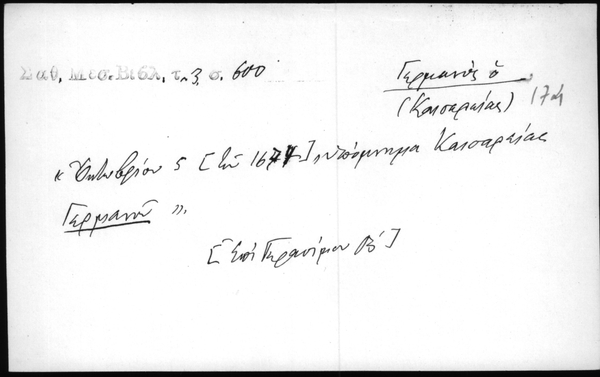 Σαθ. Μεσ. Βιβλ, τ. 3, σ. 600
Γερμανός ὁ
(Καισαρείας) 174
« Ὀκτωβρίου 5 [ἐν 1677], Ὑπόμνημα Καισαρείας
Γερμανοῦ ».
[Ἐπὶ Γερασίμου Β΄]